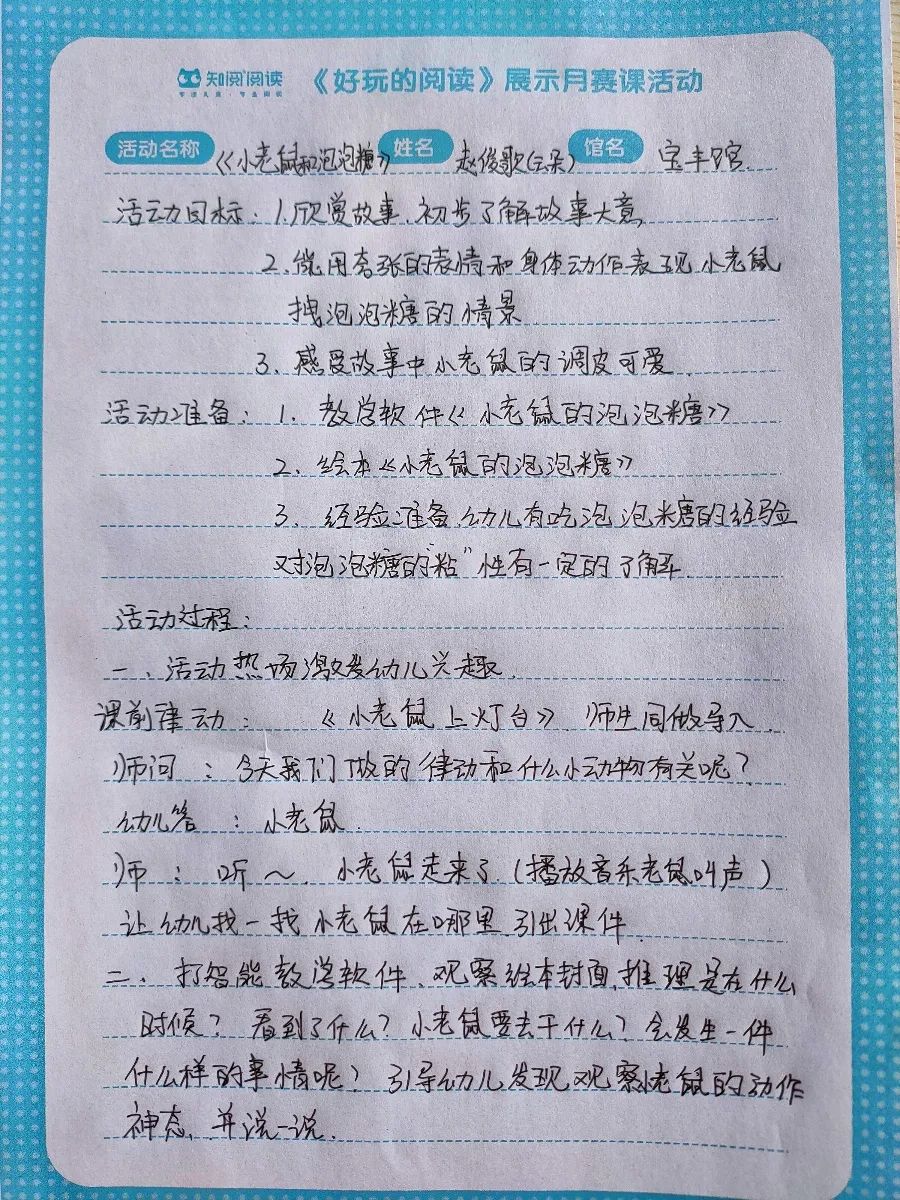 知阅阅读 《好玩的阅读》展示月赛课活动
活动名称 《小老鼠和泡泡糖》 姓名 赵俊歌(云朵) 馆名 宝丰馆
活动目标：1.欣赏故事.初步了解故事大意,
2.能用夸张的表情和身体动作表现小老鼠
拽泡泡糖的情景
3.感受故事中小老鼠的调皮可爱.
活动准备：1.教学软件《小老鼠的泡泡糖》
2.绘本《小老鼠的泡泡糖》
3.经验准备.幼儿有吃泡泡糖的经验
对泡泡糖的“粘”性有一定的了解.
活动过程：
一、活动热场激发幼儿兴趣.
课前律动：《小老鼠上灯台》 师生同做导入.
师问：今天我们做的律动和什么小动物有关呢？
幼儿答：小老鼠.
师：听～.小老鼠走来了.(播放音乐老鼠叫声)
让幼儿找一找小老鼠在哪里.引出课件.
二、打智能教学软件、观察绘本封面,推理是在什么
时候？看到了什么？小老鼠要去干什么？会发生一件
什么样的事情呢？引导幼儿发现观察小老鼠的动作
神态、并说一说.